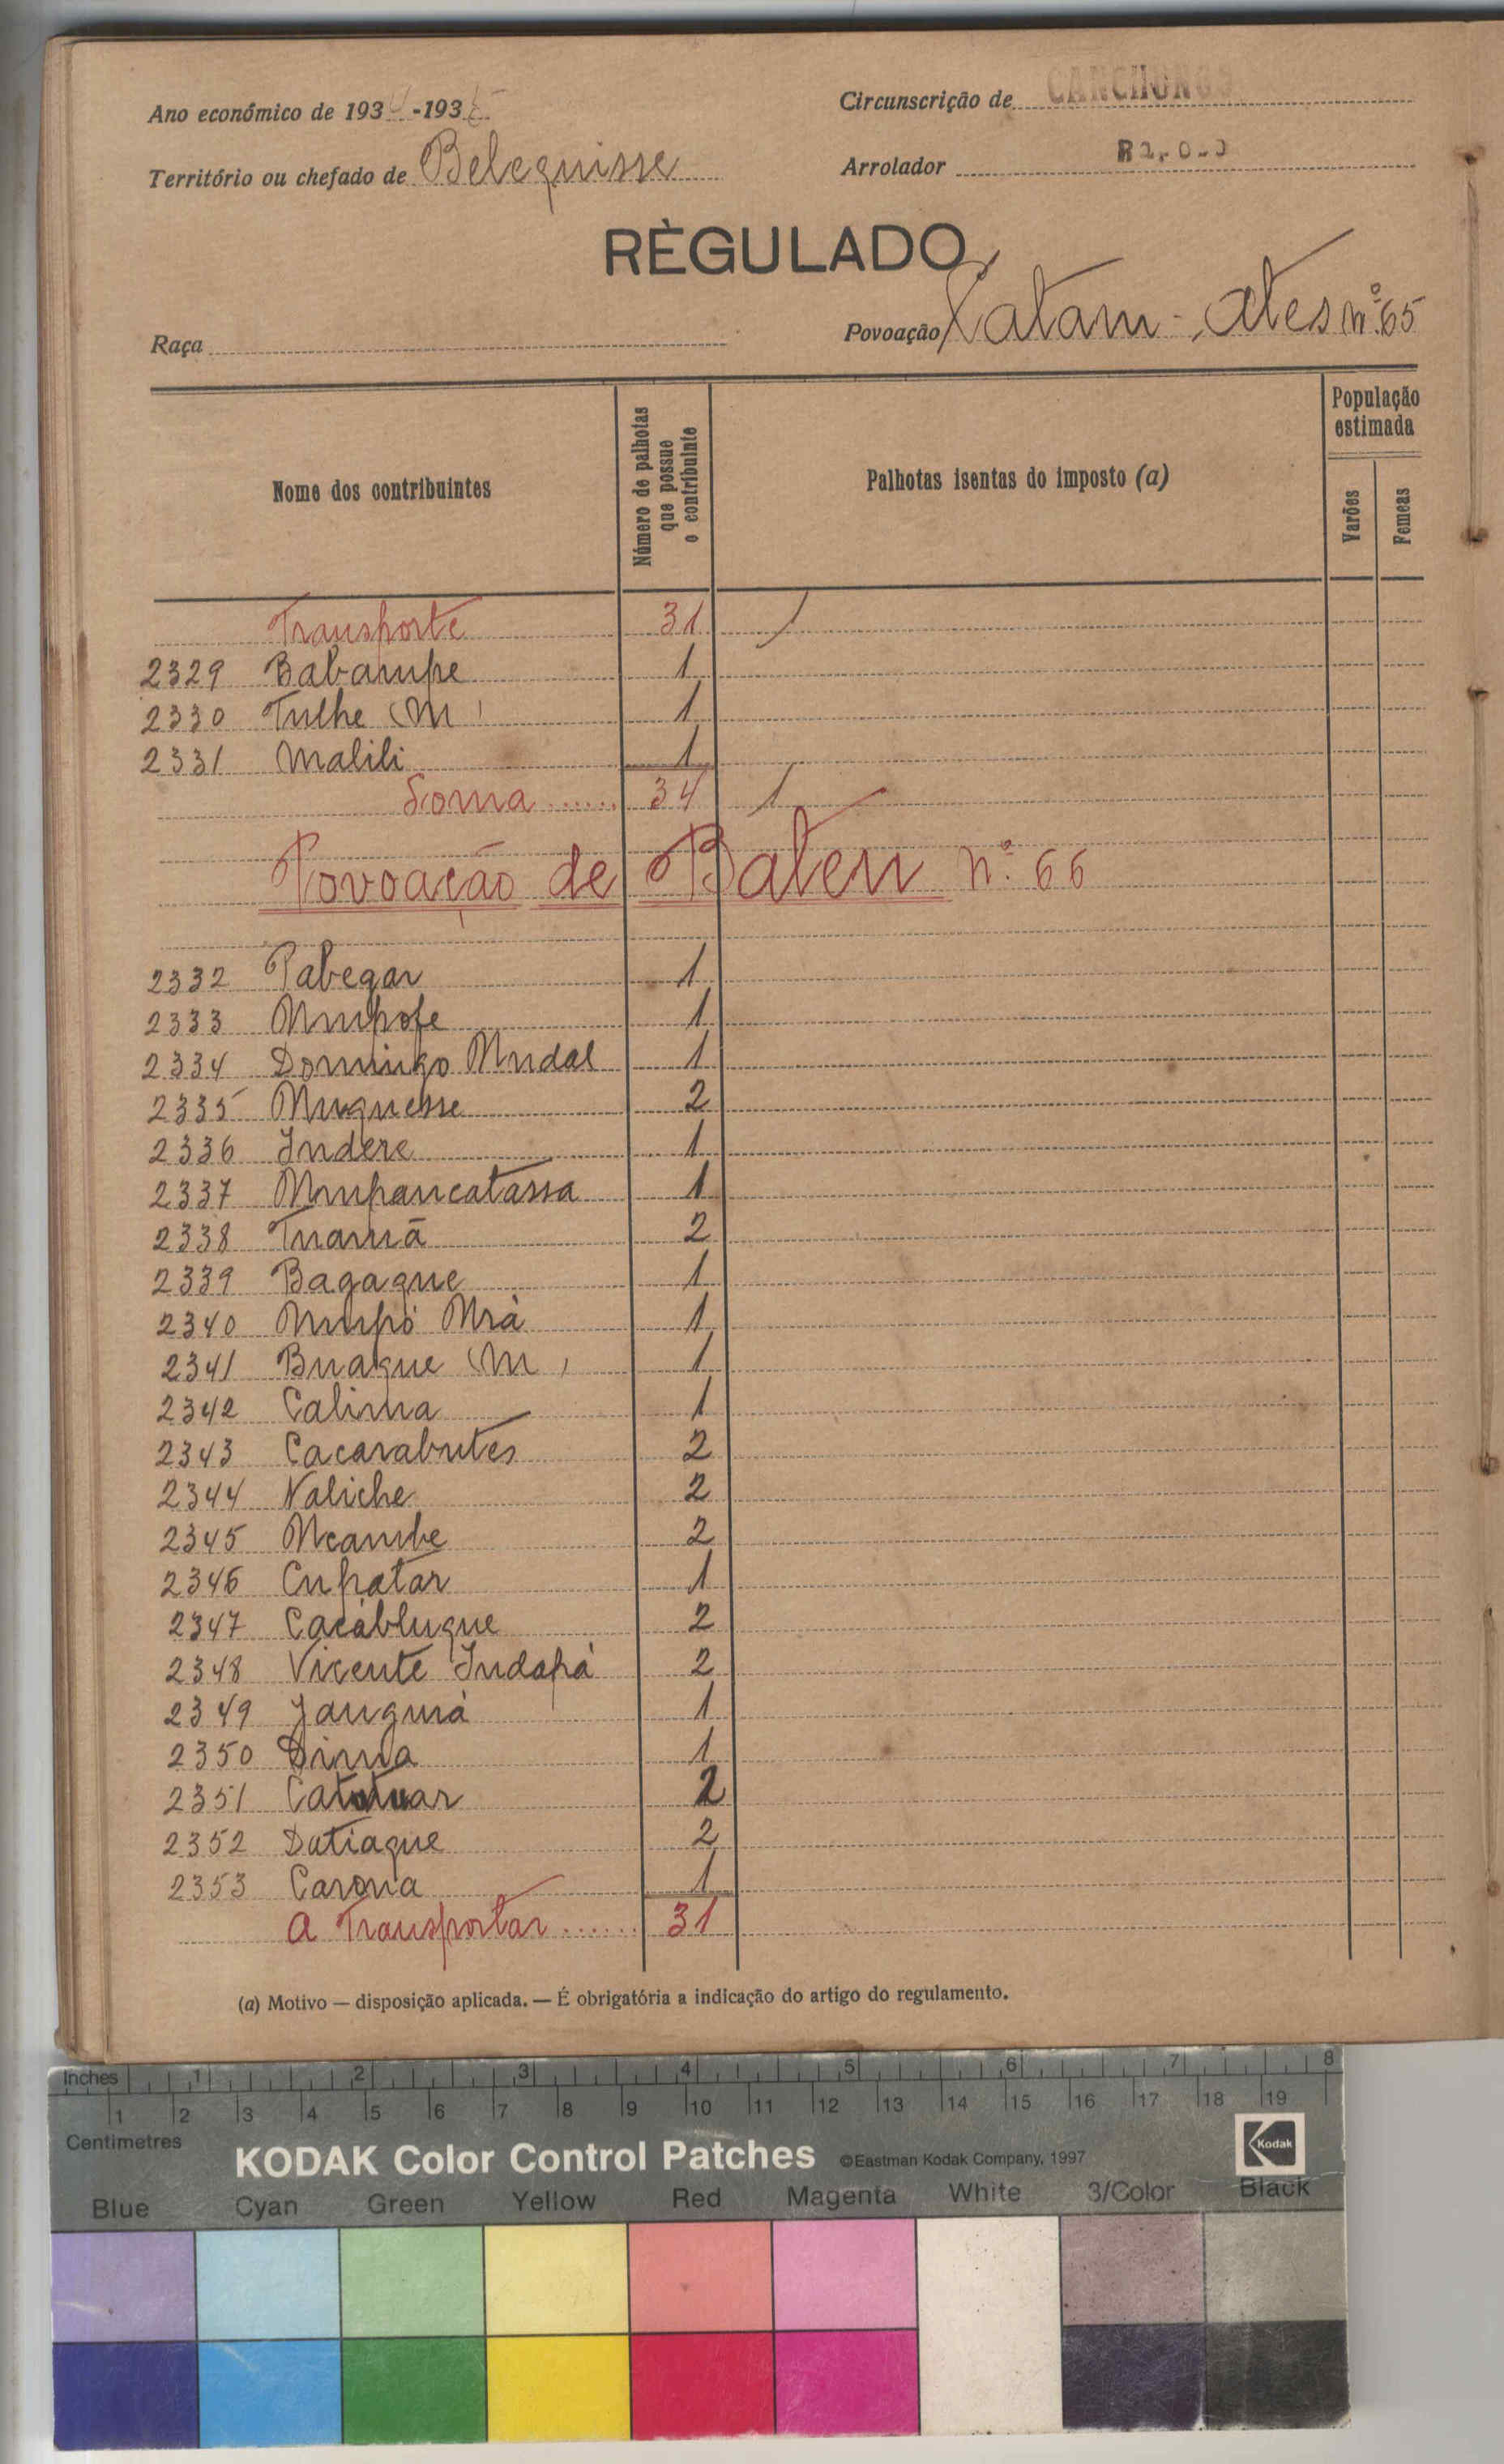 Ano económico de 193 -193
Circunscrição de CANCHUNGO
Território ou chefado de Belequisse
Arrolador
RÈGULADO
Raça
Povoação Catam-Ates nº 65
Nome dos contribuintes
Número de palhotas que possue o contribuinte
Palhotas isentas do imposto (a)
População estimada
Varões
Femeas
Transporte 31 1
2329 Babampe 1
2330 Tulhe (M) 1
2331 Malili 1
Soma ...... 34 1
Povoação de Baten nº 66
2332 Pabegar 1
2333 Mupofe 1
2334 Domingo Mudal 1
2335 Muguesse 2
2336 Indere 1
2337 Mupancatassa 1
2338 Tuamã 2
2339 Bagaque 1
2340 Mupó Mrà 1
2341 Buaque (M) 1
2342 Calima 1
2343 Cacarabutes 2
2344 Naliche 2
2345 Mcambe 2
2346 Cupatar 1
2347 Cacàbluque 2
2348 Vicente Indapá 2
2349 Janguià 1
2350 Dima 1
2351 Catutuar 2
2352 Datiaque 2
2353 Carona 1
A Transportar ...... 31
(a) Motivo — disposição aplicada. — É obrigatória a indicação do artigo do regulamento.
Inches 1 2 3 4 5 6 7 8
1 2 3 4 5 6 7 8 9 10 11 12 13 14 15 16 17 18 19
Centimetres
KODAK Color Control Patches ©Eastman Kodak Company, 1997 Kodak
Blue Cyan Green Yellow Red Magenta White 3/Color Black